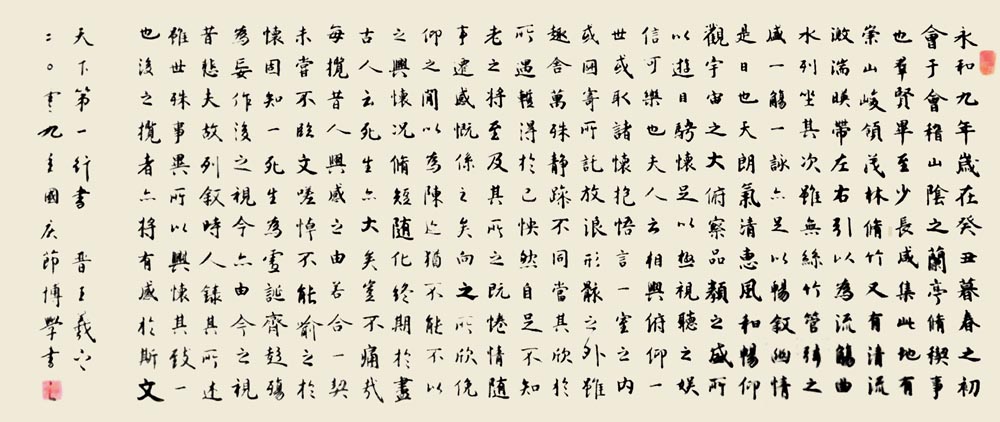 永和九年歲在癸丑暮春之初
會于會稽山陰之蘭亭脩稧事
也羣賢畢至少長咸集此地有
崇山峻領茂林脩竹又有清流
激湍暎帶左右引以為流觴曲
水列坐其次雖無絲竹管弦之
盛一觴一詠亦足以暢敘幽情
是日也天朗氣清惠風和暢仰
觀宇宙之大俯察品類之盛所
以遊目騁懷足以極視聽之娛
信可樂也夫人之相與俯仰一
世或取諸懷抱悟言一室之內
或因寄所託放浪形骸之外雖
趣舍萬殊靜躁不同當其欣於
所遇蹔得於己怏然自足不知
老之將至及其所之既惓情隨
事遷感慨係之矣向之所欣俛
仰之閒以為陳迹猶不能不以
之興懷況脩短隨化終期於盡
古人云死生亦大矣豈不痛哉
每攬昔人興感之由若合一契
未嘗不臨文嗟悼不能喻之於
懷固知一死生為虛誕齊彭殤
為妄作後之視今亦由今之視
昔悲夫故列敘時人錄其所述
雖世殊事異所以興懷其致一
也後之攬者亦將有感於斯文
天下第一行書 晉王羲之
二〇 九 國庆節博學書